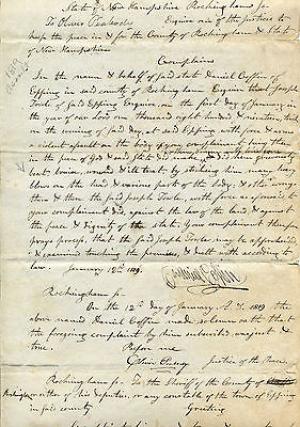 State of New Hampshire Rockingham ss
To Oliver Peabody Esquire one of the justices to
keep the peace in & for the County of Rockingham & State
of New Hampshire
Complains
In the name & behalf of said state Daniel Coffin of
Epping in said county of Rockingham Esquire that Joseph
Towle of said Epping Esquire, on the first day of January in
the year of our Lord one thousand eight hundred & nineteen,
on the evening of said day, at said Epping with force & arms
a violent assault on the body of your complainant being then
in the peace of God and said State did make & did then grievously
beat bruise, wound & ill treat by striking him many heavy
blows on the head & various parts of the body, & other wrongs
then & there the said Joseph Towle, with force as aforesaid to
your complainant did, against the law of the land, & against
the peace & dignity of the state. Your complainant therefore
prays process, that the said Joseph Towle may be apprehended
& examined touching the premises, & dealt with according to
law. January 12th 1819. Daniel Coffin
Rockingham ss.
On the 12th day of January A.D. 1819 the
above named Daniel Coffin made solemn oath that
the foregoing complaint by him subscribed was just &
true.
Before me
Justice of the Peace.
Rockingham ss To the Sheriff of the County of
Rockingham or either of his deputies, or any constable of the town of Epping
in said county Greeting